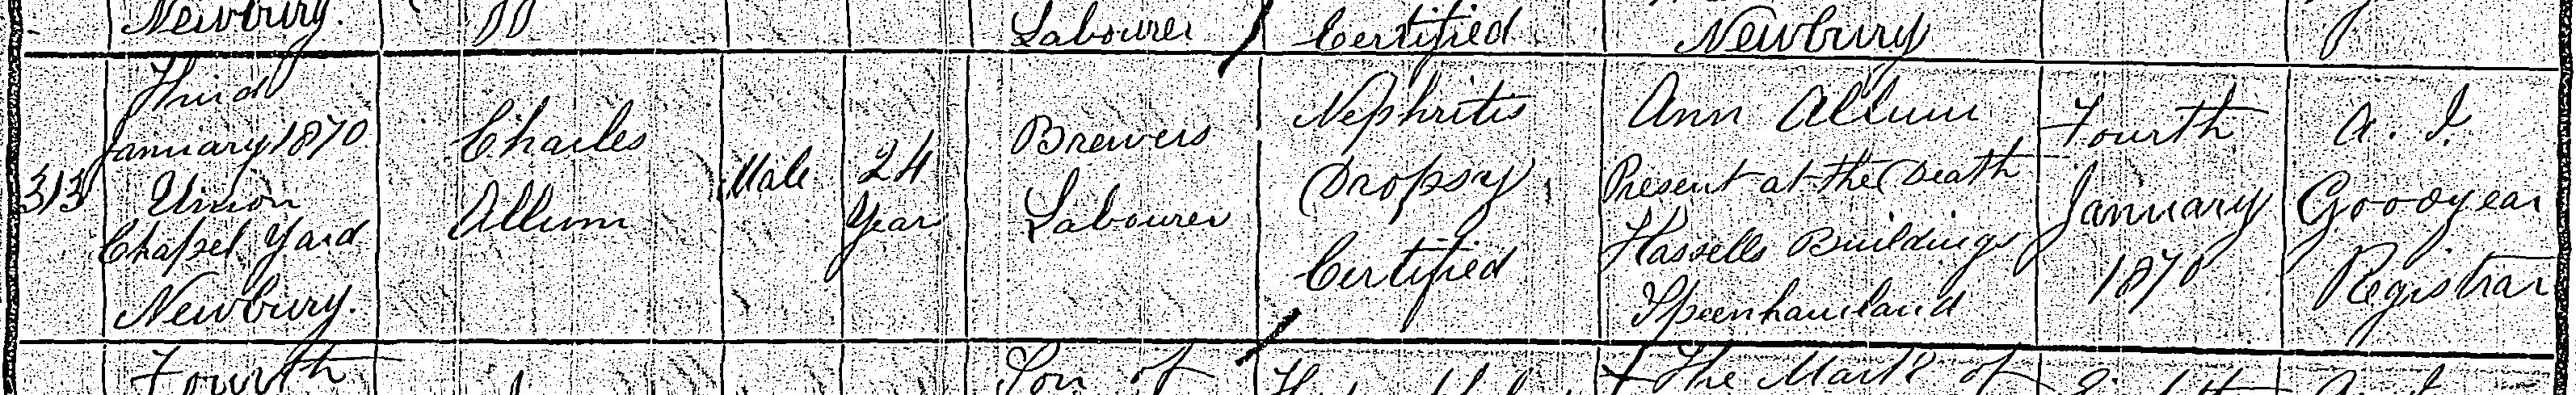 Newbury.
Labourer
Certified
Newbury
313
Third
January 1870
Union
Chapel Yard
Newbury.
Charles
Allum
Male
24
Year
Brewers
Labourer
Nephritis
Dropsy
Certified
Ann Allum
Present at the Death
Hassells Buildings
Speenhamland
Fourth
January
1870
A. I.
Goodyear
Registrar
Fourth
Son of
The Mark of